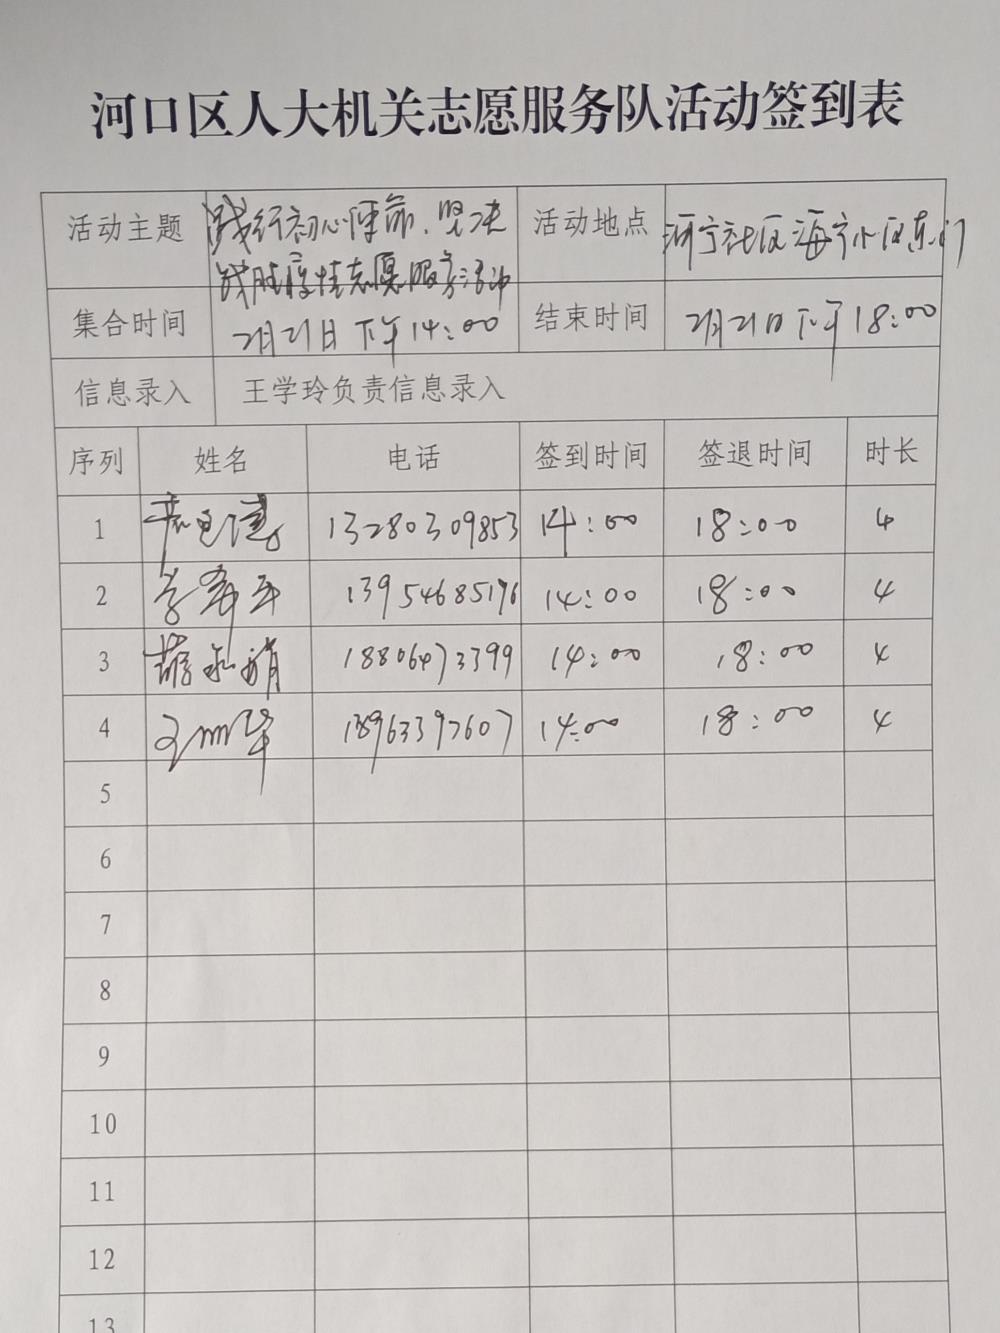 河口区人大机关志愿服务队活动签到表
活动主题 践行初心使命、坚决 活动地点 河宁社区海宁小区东门
战胜疫情志愿服务活动
集合时间 2月21日下午14:00 结束时间 2月21日下午18:00
信息录入 王学玲负责信息录入
序列 姓名 电话 签到时间 签退时间 时长
1 13280309853 14:00 18:00 4
2 13954685176 14:00 18:00 4
3 18806473399 14:00 18:00 4
4 18963397607 14:00 18:00 4
5
6
7
8
9
10
11
12
13